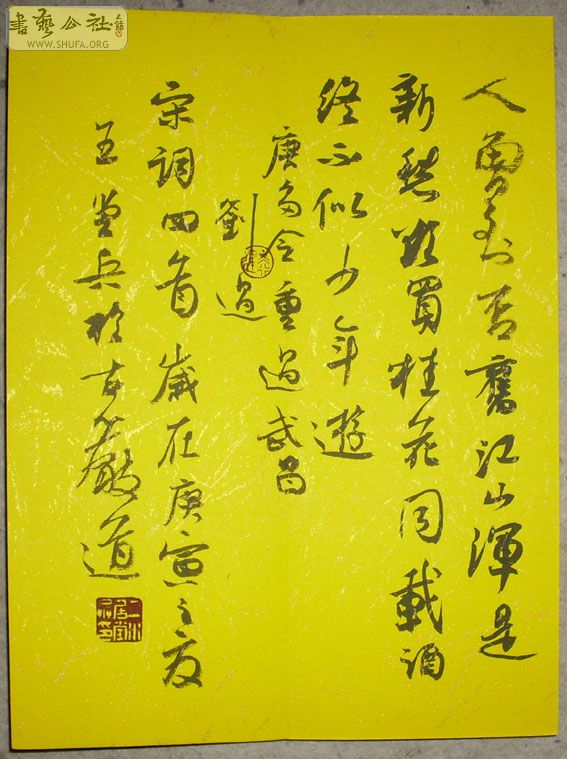 書藝公社
WWW.SHUFA.ORG
人曾到否舊江山渾是
新愁欲買桂花同載酒
終不似少年遊
唐多令重過武昌
劉過
宋詞四首歲在庚寅之夏
王兵於古嚴道